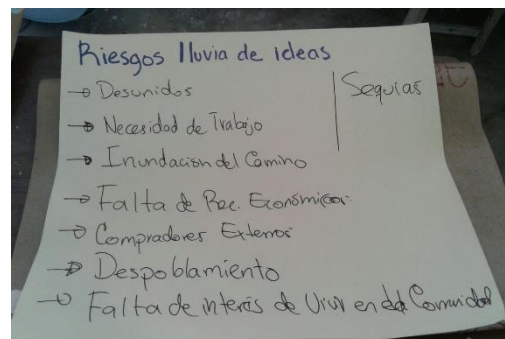 Riesgos lluvia de ideas
→ Desunidos
→ Necesidad de Trabajo
→ Inundación del Camino
→ Falta de Rec. Económicos
→ Compradores Externos
→ Despoblamiento
→ Falta de interés de Vivir en la Comunidad
Sequias